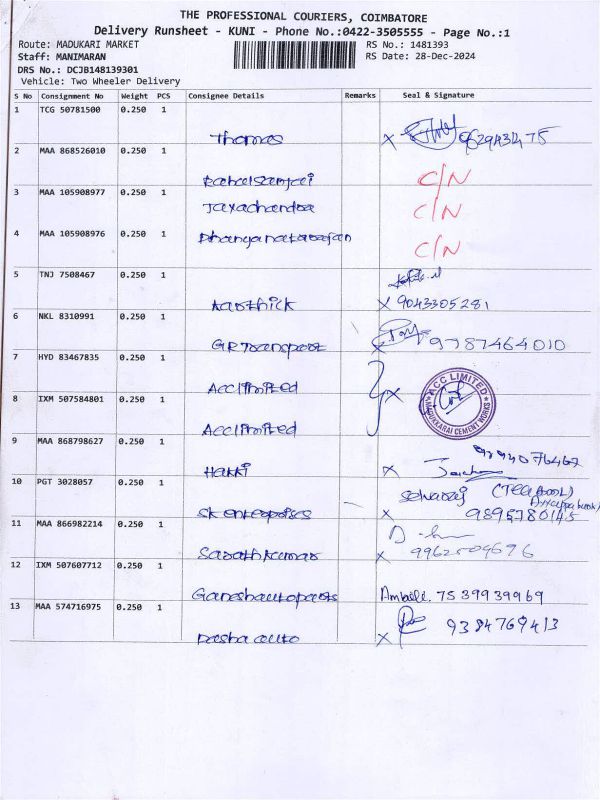 THE PROFESSIONAL COURIERS, COIMBATORE
Delivery Runsheet - KUNI - Phone No.:0422-3505555 - Page No.:1
Route: MADUKARI MARKET
RS No.: 1481393
Staff: MANIMARAN
RS Date: 28-Dec-2024
DRS No.: DCJB148139301
Vehicle: Two Wheeler Delivery
S No Consignment No Weight PCS Consignee Details Remarks Seal & Signature
1 TCG 50781500 0.250 1
Thomas x
2 MAA 868526010 0.250 1
C/N
3 MAA 105908977 0.250 1
Jayachandra C/N
4 MAA 105908976 0.250 1
C/N
5 TNJ 7508467 0.250 1
Karthick x 9043305281
6 NKL 8310991 0.250 1
GR Transport x 9787464010
7 HYD 83467835 0.250 1
ACC limited x
ACC LIMITED
MADUKKARAI CEMENT WORKS
8 IXM 507584801 0.250 1
ACC limited
9 MAA 868798627 0.250 1
Hakki x
10 PGT 3028057 0.250 1
Selvaraj
SK enterprises x
11 MAA 866982214 0.250 1
Sarathkumar x
12 IXM 507607712 0.250 1
Ganeshautoparts 7539939969
13 MAA 574716975 0.250 1
Pasha auto x 9384769413